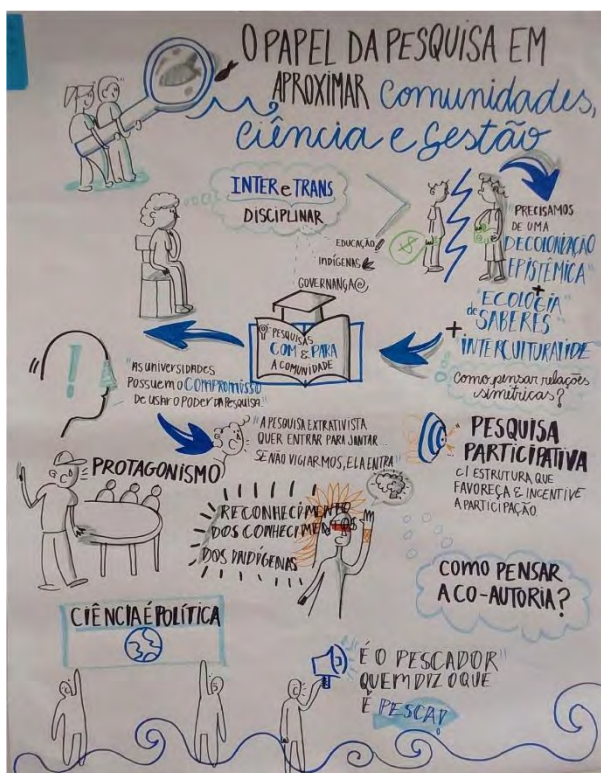 O PAPEL DA PESQUISA EM
APROXIMAR comunidades,
ciência e gestão
INTER e TRANS
DISCIPLINAR
EDUCAÇÃO
INDÍGENAS
GOVERNANÇA
"PRECISAMOS
DE UMA
DECOLONIZAÇÃO
EPISTÊMICA"
+
"ECOLOGIA
de SABERES"
+
INTERCULTURALIDE
como pensar relações
simétricas?
PESQUISAS
COM & PARA
A COMUNIDADE
!
"AS UNIVERSIDADES
POSSUEM O COMPROMISSO
DE USAR O PODER DA PESQUISA"
"A PESQUISA EXTRATIVISTA
QUER ENTRAR PARA JANTAR...
SE NÃO VIGIARMOS, ELA ENTRA"
PESQUISA
PARTICIPATIVA
C/ ESTRUTURA QUE
FAVOREÇA & INCENTIVE
A PARTICIPAÇÃO
PROTAGONISMO
RECONHECIMENTO
DOS CONHECIMENTOS
DOS INDÍGENAS
COMO PENSAR
A CO-AUTORIA?
CIÊNCIA É POLÍTICA
"É O PESCADOR"
QUEM DIZ O QUE
É PESCA!